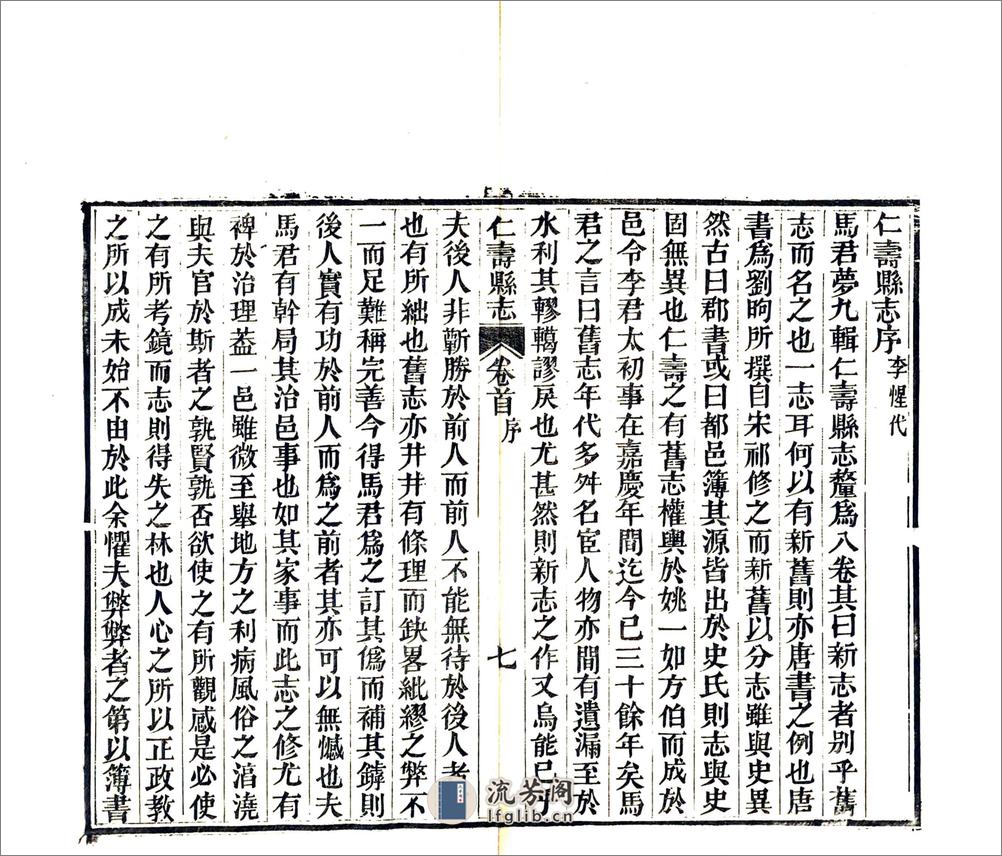 仁壽縣志序 李惺代
馬君夢九輯仁壽縣志釐爲八卷其曰新志者别乎舊
志而名之也一志耳何以有新舊則亦唐書之例也唐
書爲劉昫所撰自宋祁修之而新舊以分志雖與史異
然古曰郡書或曰都邑簿其源皆出於史氏則志與史
固無異也仁壽之有舊志權輿於姚一如方伯而成於
邑令李君太初事在嘉慶年間迄今已三十餘年矣馬
君之言曰舊志年代多舛名宦人物亦間有遺漏至於
水利其轇轕謬戾也尤甚然則新志之作又烏能已乎
仁壽縣志 卷首 序 七
夫後人非蘄勝於前人而前人不能無待於後人者
也有所絀也舊志亦井井有條理而缺畧紕繆之弊不
一而足難稱完善今得馬君爲之訂其僞而補其罅則
後人實有功於前人而爲之前者其亦可以無憾也夫
馬君有幹局其治邑事也如其家事而此志之修尤有
裨於治理葢一邑雖微至舉地方之利病風俗之淐澆
與夫官於斯者之孰賢孰否欲使之有所觀感是必使
之有所考鏡而志則得失之林也人心之所以正政教
之所以成未始不由於此余懼夫弊弊者之第以簿書
流芳阁
lfglib.cn